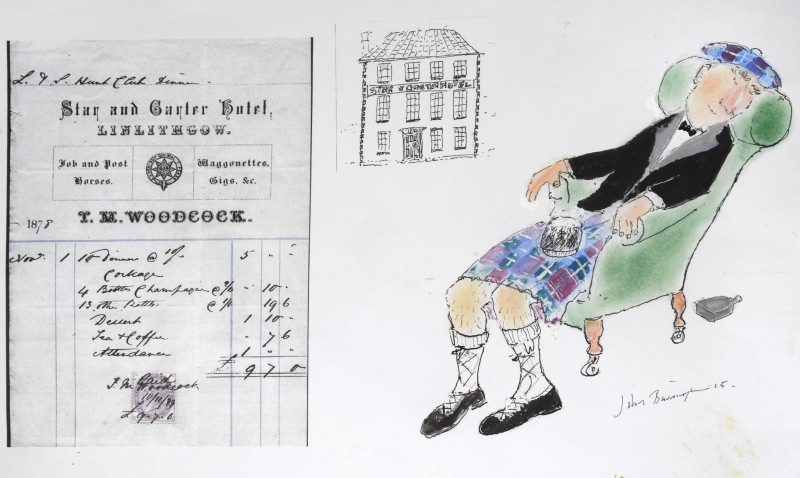 L & S. Hunt Club Dinner
Star and Garter Hotel,
LINLITHGOW.
Job and Post
Horses.
Waggonettes,
Gigs, &c.
T. M. WOODCOCK.
1878
Nov. 1 10 dinners @ 10/- 5 " "
Corkage
4 Bottles Champagne @ 2/6 - 10 -
13 other Bottles @ 1/6 19 6
Dessert 1 10 -
Tea & Coffee - 7 6
Attendance 1 " -
£ 9 7 0
Paid
T. M. Woodcock
£9-7-0
STAR & GARTER HOTEL
John Burningham 15.